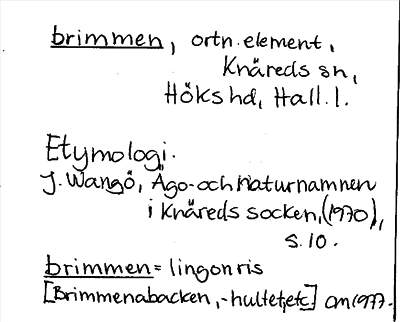 brimmen, ortn.element,
Knäreds sn,
Höks hd, Hall.l.
Etymologi.
J. Wangö, Ägo- och Naturnamnen
i Knäreds socken, (1970),
s. 10.
brimmen = lingonris
[Brimmenabacken, -hultet, etc] CM 1977.